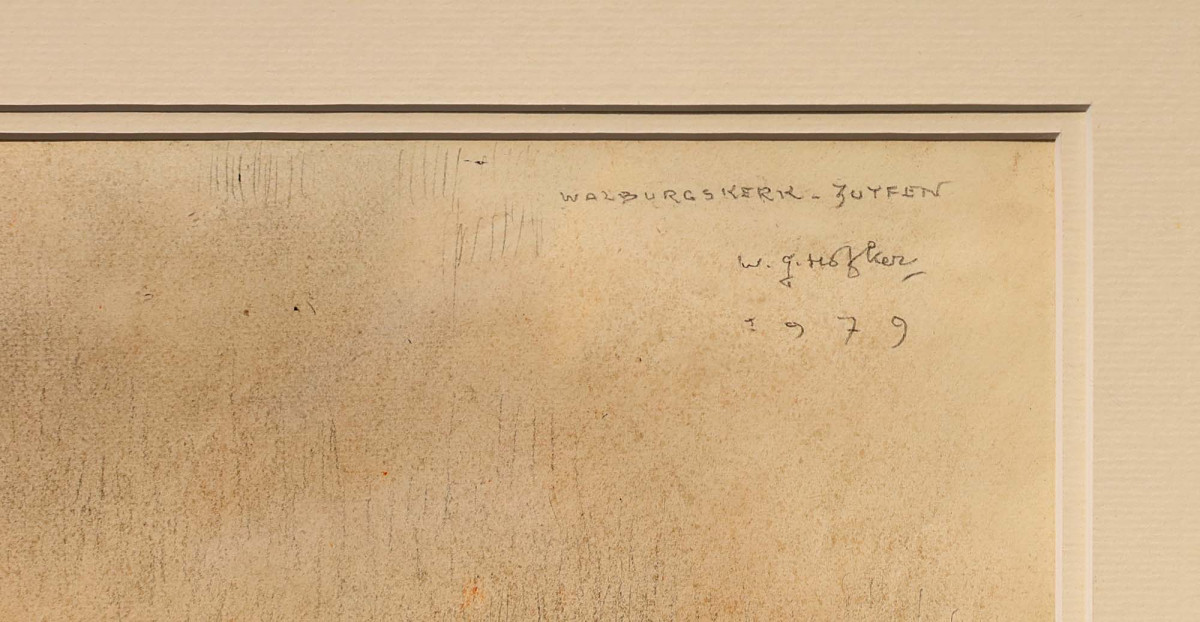 WALBURGSKERK - ZUTFEN
W. G. Hofker
1979